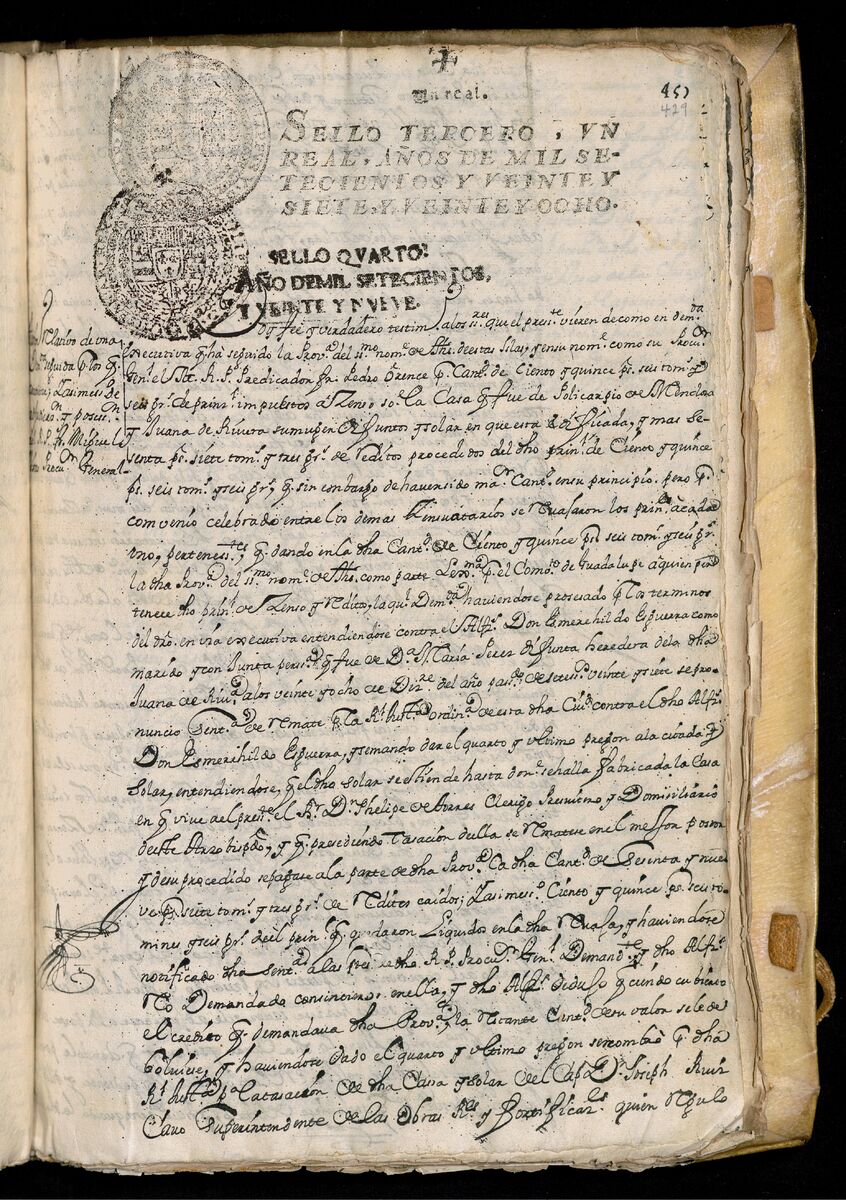 Un real.
451
429
SELLO TERCERO, VN
REAL, AÑOS DE MIL SE-
TECIENTOS Y VEINTE Y
SIETE, Y VEINTE Y OCHO.
SELLO QVARTO:
AÑO DE MIL SETECIENTOS,
Y VEINTE Y NVEVE.
Doy fee y verdadero testim.º alos s.res que el pres.te vieren de como en dem.da
executiva q̃ ha seguido la Prov.ª del ss.mo nom.e de Jhs. de estas Islas, y en su nom.e como su Procu.or
Gen.l el M. R. P. Predicador fr. Pedro p.r Cant.d de Ciento y quince p.s seis tom.s y
seis gr.s de prin.l impuestos á Zenso so.e la Casa q̃ fue de Policarpio de Mendosa
y Juana de Rivera su muger difuntos y solar en que esta edificada, y mas se-
senta p.s siete tom.s y tres gr.s de reditos procedidos del dho prin.l de Ciento y quince
p.s seis tom.s y seis gr.s, q̃ sin embargo de haver sido ma.or Cant.d en su principio, pero p.r
comvenio celebrado entre los demas Zensuatarios se reuasaron los prin.s á cada
vno, pertenes.tes q̃dando en la dha Cant.d de Ciento y quince p.s seis tom.s y seis gr.s
la dha Prov.ª del ss.mo nom.e de Jhs. como parte Lex.ma p.r el Comv.to de Guadalupe a quien per-
tenece dho prin.l de Zenso y redito, la q.l Dem.da haviendose procesado p.r los terminos
del dro. en via executiva entendiendose contra el Alf.s Don Esmerehildo Esguerra como
marido y conjunta pers.na q̃ fue de D.ª Maria Peres difunta heredera de la dha
Juana de Riv.ra a los veinte y ocho de Diz.re del año pas.do de setes.s veinte y siete se pro-
nuncio Sent.a de remate p.r la R.l Just.a ordin.a de esta dha Ciu.d contra el dho Alf.s
Don Esmerehildo Esguerra, y se mando dar el quarto y ultimo pregon a la citada y
Solar, entendiendose, q̃ el dho solar se estiende hasta don.e se halla fabricada la Casa
en q̃ vive al pres.te el B.r D.n Phelipe de Torres Clerigo Presvitero y Domisiliario
deste Arzobispdo, y q̃ presediendo tasación della se remate en el mejor postor
y de su procedido se pagase a la parte de dha Prov.ª la dha Cant.d de sesenta y nue-
ve p.s siete tom.s y tres gr.s de reditos caidos; y asimes.o Ciento y quince p.s seis to-
mines y seis gr.s del prin.l q̃ quedaron Liquidos en la dha reuasa, y haviendose
notificado dha sent.a a las ptes dho R. P. Procu.r Gen.l Demand.te y dho Alf.s
reo Demandado consintieron en ella, y dho Alf.s deduso q̃ siendo cubierto
el credito q̃ demandava dha Prov.ª, la restante Cant.d de su valor se le de-
bolviese, y haviendose dado el quarto y ultimo pregon se nombrò p.r dha
R.l Just.a p.a la tasación de dha Casa y solar de el Cap.n D.n Joseph Ruiz
Clavo Superintendente de las Obras R.es y Fortificac.s quien reguló